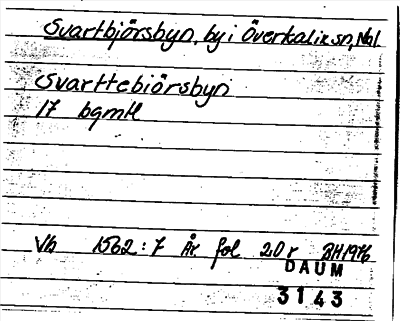 Svartbjörsbyn, by i Överkalix sn, Nbl
Svarttebiörsbyn
17 bqmtl
Vb 1562:7 År. fol 20 r BH1976
DAUM
3143